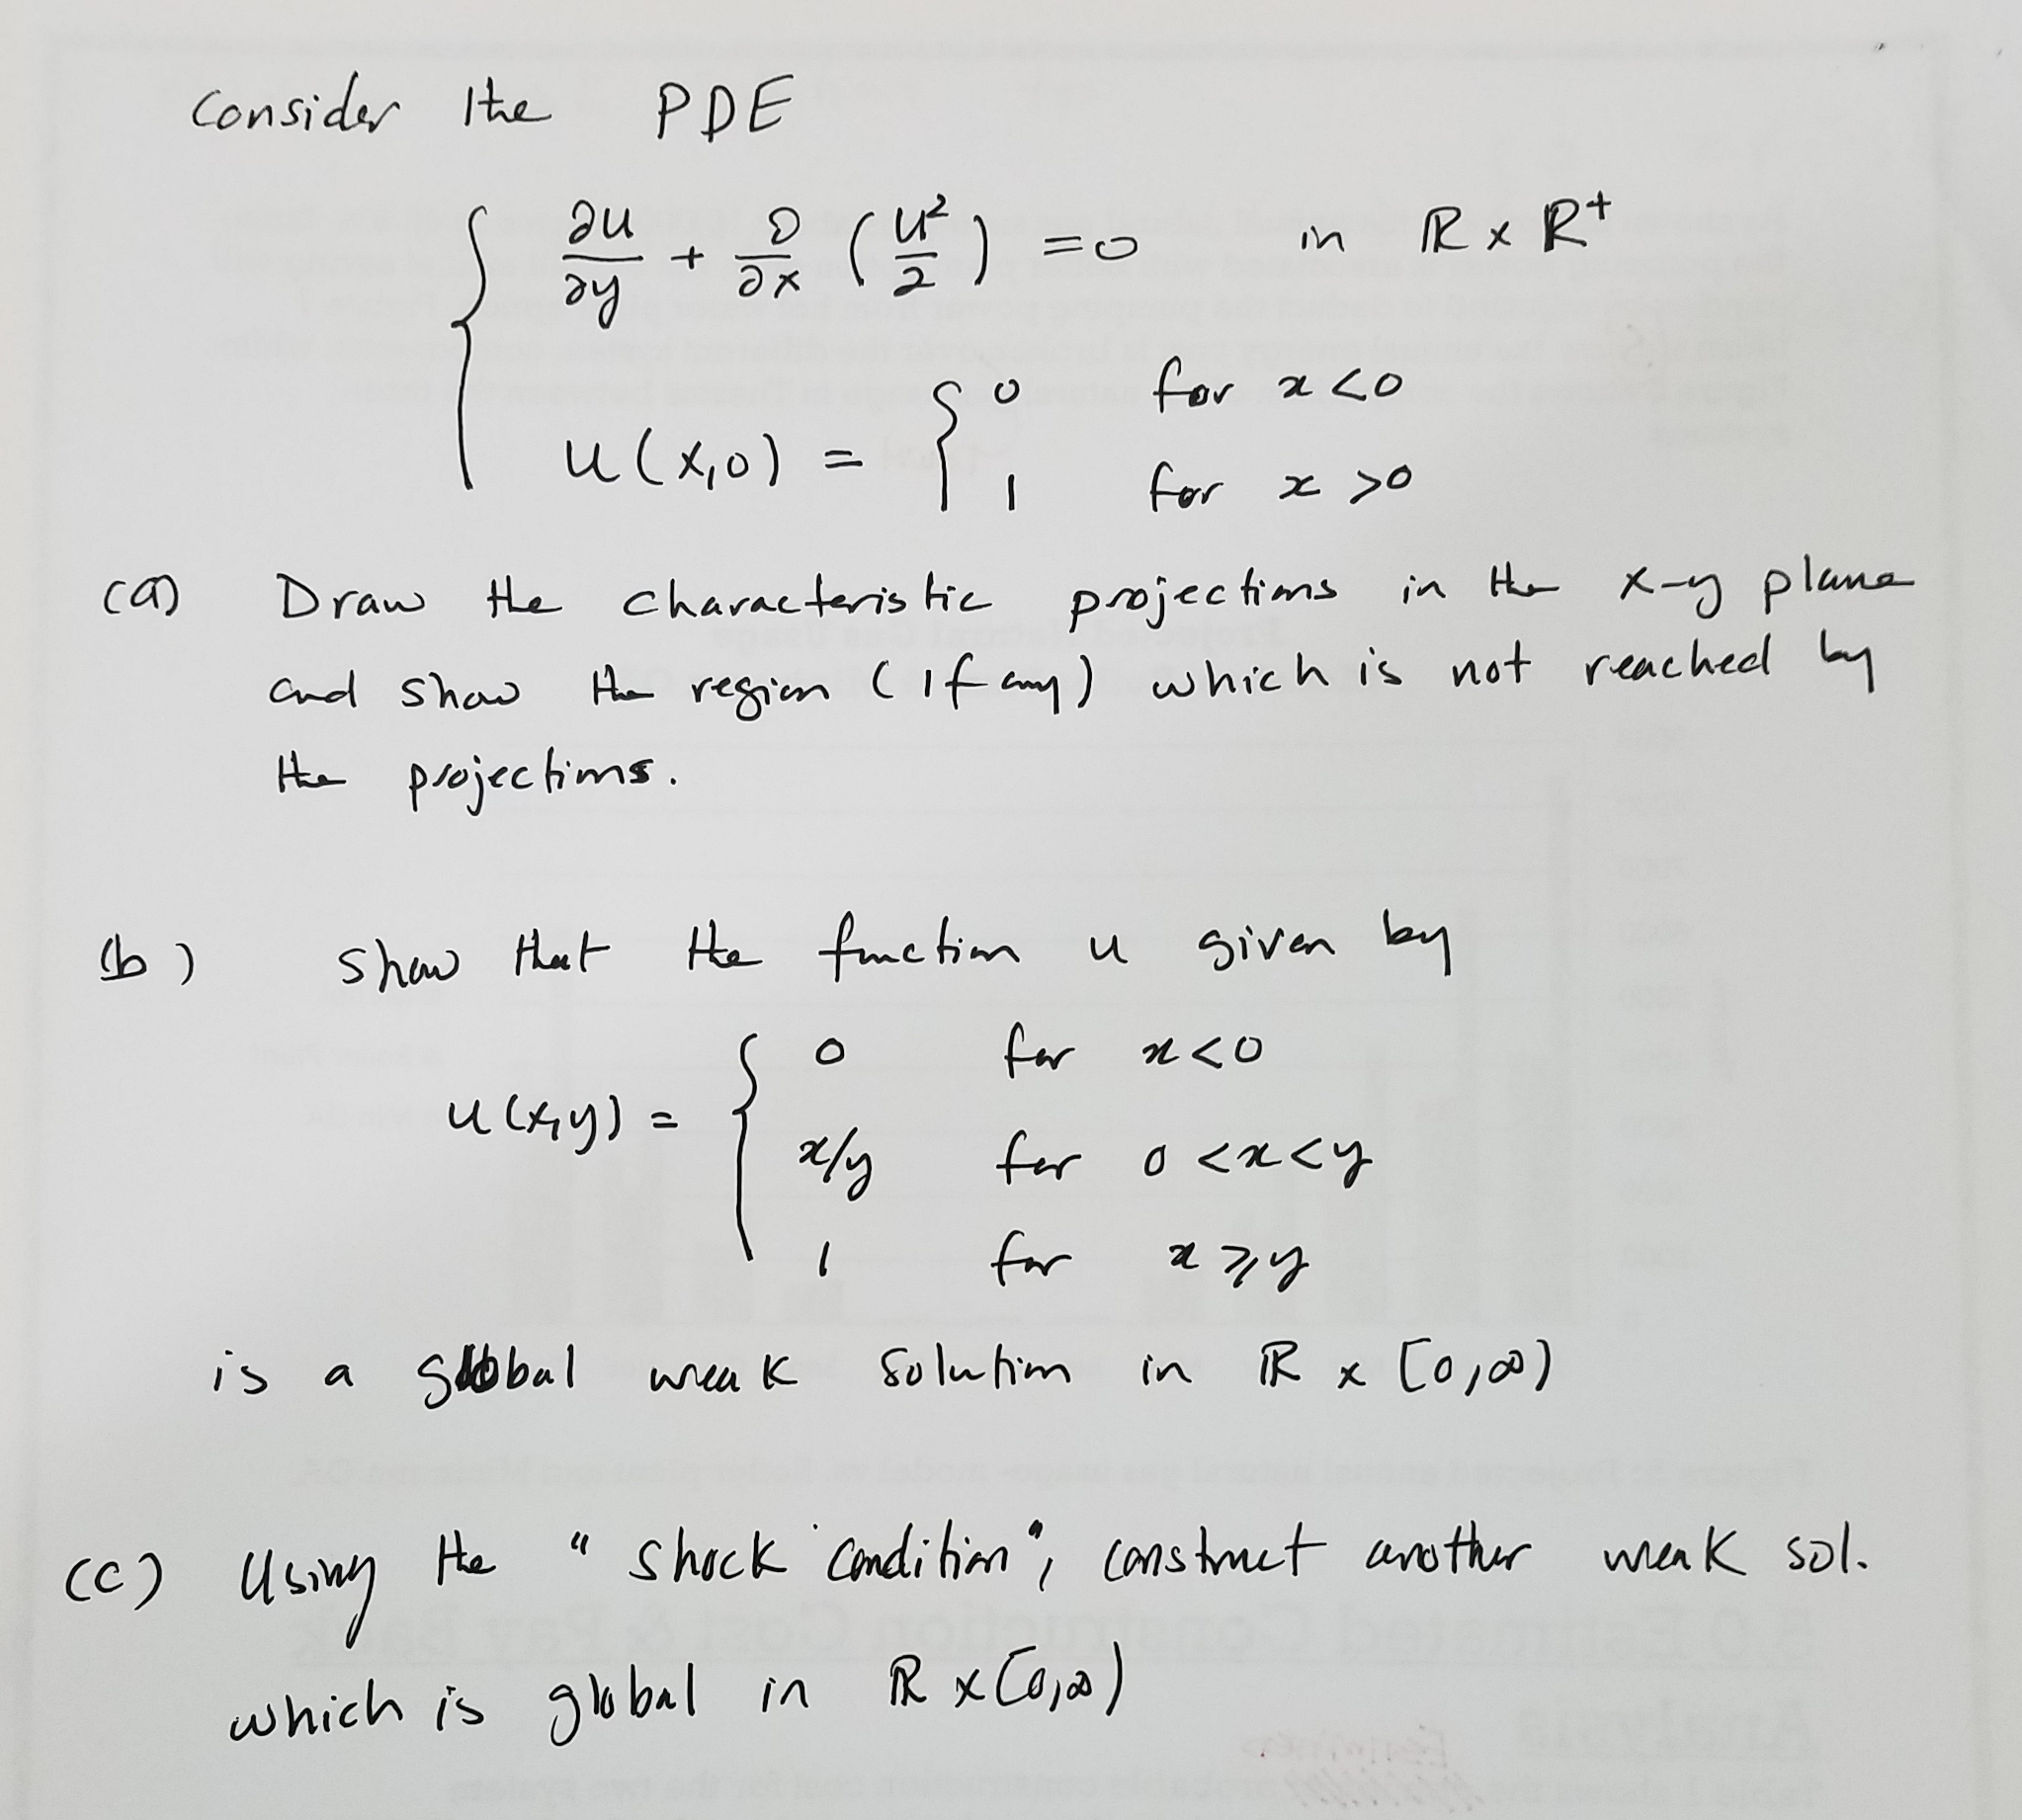 Consider the PDE
∂u/∂y + ∂/∂x (u²/2) = 0 in ℝ x ℝ⁺
u(x,0) = { 0 for x<0
1 for x >0
(a) Draw the characteristic projections in the x-y plane
and show the region (if any) which is not reached by
the projections.
(b) show that the function u given by
0 for x<0
u(x,y) = { x/y for 0 <x<y
1 for x ⩾ y
is a global weak solution in ℝ x [0,∞)
(c) Using the "shock condition", construct another weak sol.
which is global in ℝ x [0,∞)